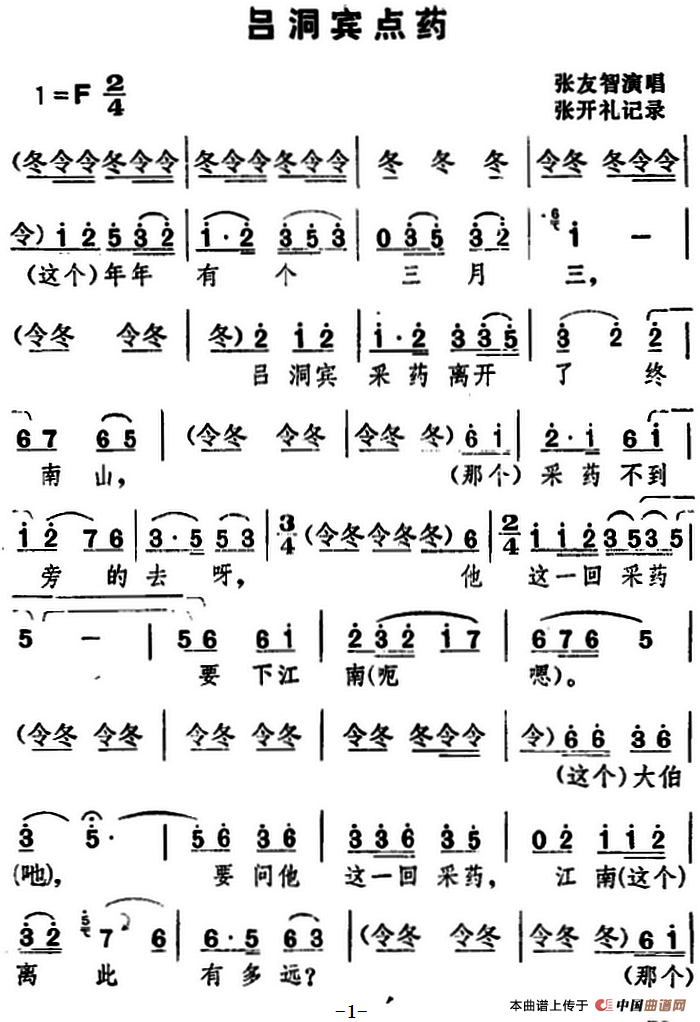 吕洞宾点药
1=F 2/4
张友智演唱
张开礼记录
(冬令令冬令令 | 冬令令冬令令 | 冬 冬 冬 | 令冬 冬令令 |
令) 1 2 5 3 2 | 1·2 3 5 3 | 0 3 5 3 2 | 6 1 — |
(这个)年年 有 个 三 月 三,
(令冬 令冬 | 冬) 2 1 2 | 1·2 3 3 5 | 3 2 2 |
吕 洞宾 采 药 离开 了 终
6 7 6 5 | (令冬 令冬 | 令冬 冬) 6 1 | 2·1 6 1 |
南 山, (那个) 采 药 不到
1 2 7 6 | 3·5 5 3 | 3/4 (令冬令冬冬) 6 | 2/4 1 1 2 3 5 3 5 |
旁 的 去 呀, 他 这一回 采药
5 — | 5 6 6 1 | 2 3 2 1 7 | 6 7 6 5 |
要 下江 南(呃 嗯)。
(令冬 令冬 | 令冬 令冬 | 令冬 冬令令 | 令) 6 6 3 6 |
(这个)大伯
3 5· | 5 6 3 6 | 3 3 6 3 5 | 0 2 1 1 2 |
(吔), 要 问他 这一回 采药, 江 南(这个)
3 2 5 7 6 | 6·5 6 3 | (令冬 令冬 | 令冬 冬) 6 1 |
离 此 有 多 远? (那个)
-1-
本曲谱上传于 中国曲谱网